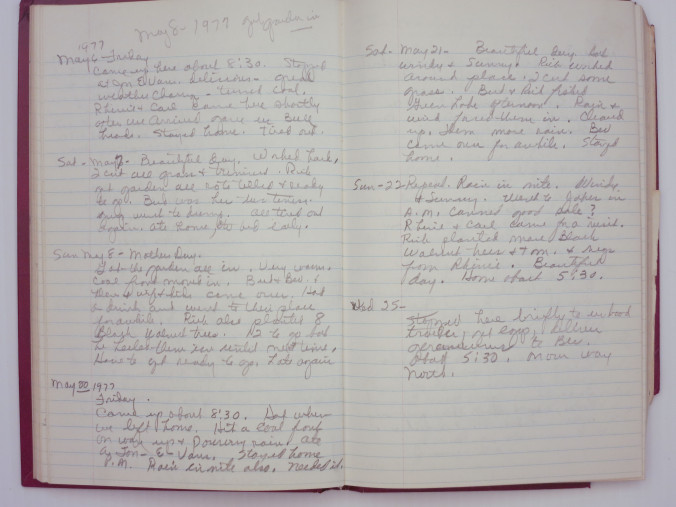 May 8 - 1977 garden in
1977
May 6 - Friday
Came up here about 8:30. Stopped
at Jon E Vans. Delicious - great
weather - turned cool.
& Carl came here shortly
after we arrived gave us Bull
heads. Stayed home. Tired out.
Sat - May 7 - Beautiful Day. Worked hard,
I cut all grass & trimmed. Rib
got garden all roto tilled & ready
to go. Bud was here two times.
went to . All tired out
again. Ate home to bed early.
Sun May 8 - Mothers Day.
Got the garden all in. Very warm.
Cool front moved in. Bud & Bev &
& wife & kids came over. Had
a drink and went to their place
for awhile. Rib also planted 8
Black Walnut trees. 42 to go but
he them in until next time.
Have to get ready to go. Lots again
May 20 1977
Friday.
Came up about 8:30. Hot when
we left home. Hit a cool front
on way up & Pouring rain. Ate
at Jon - E - Vans. Stayed home
P.M. Rain in nite also. Needed it.
Sat - May 21 - Beautiful Day but
windy & Sunny. Rib worked
around place. I cut some
grass. Bud & Rib fished
Green Lake afternoon. Rain &
wind them in. Cleared
up. Then more rain. Bev
came over for awhile. Stayed
home.
Sun - 22 Repeat. Rain in nite. Windy
& Sunny. Went to in
A.M. Canned good sale?
& Carl came for a visit.
Rib planted more Black
Walnut trees & Tom. &
from . Beautiful
day. Home about 5:30.
Wed 25 -
Stopped here briefly to unhook
trailer, get eggs, deliver
to Bev.
about 5:30. on our way
North.